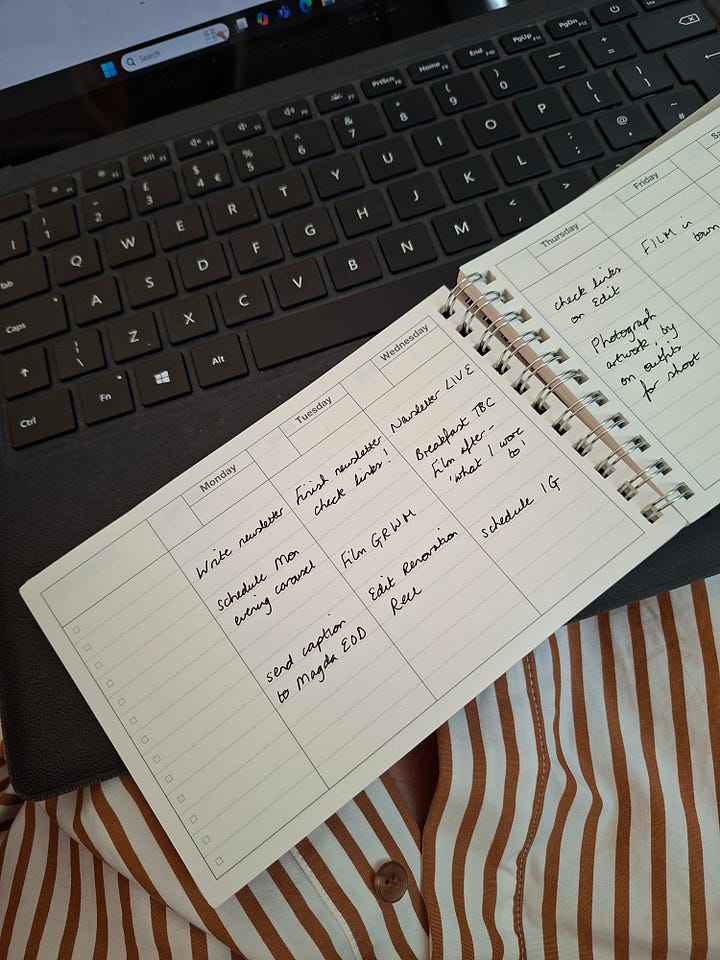 Search
PrtScn F8 Home F9 End F10 PgUp F11 PgDn F12
! 1 " 2 £ 3 $ 4 € % 5 ^ 6 & 7 * 8 ( 9 ) 0 _ - + =
Tab Q W E R T Y U I O P { [ } ]
Caps A S D F G H J K L : ; @ ' ~ #
| \ Z X C V B N M < , >
Ctrl Fn Alt
Monday
Write newsletter
schedule Mon
evening carousel
send caption
to Magda EOD
Tuesday
Finish newsletter
check links!
Film GRWM
Edit Renovation
Reel
Wednesday
Newsletter LIVE
Breakfast TBC
Film after -
'what I wore
to'
schedule IG
Thursday
check links
on Edit
Photograph
artwork, by
on outfits
for shoot
Friday
FILM in
town